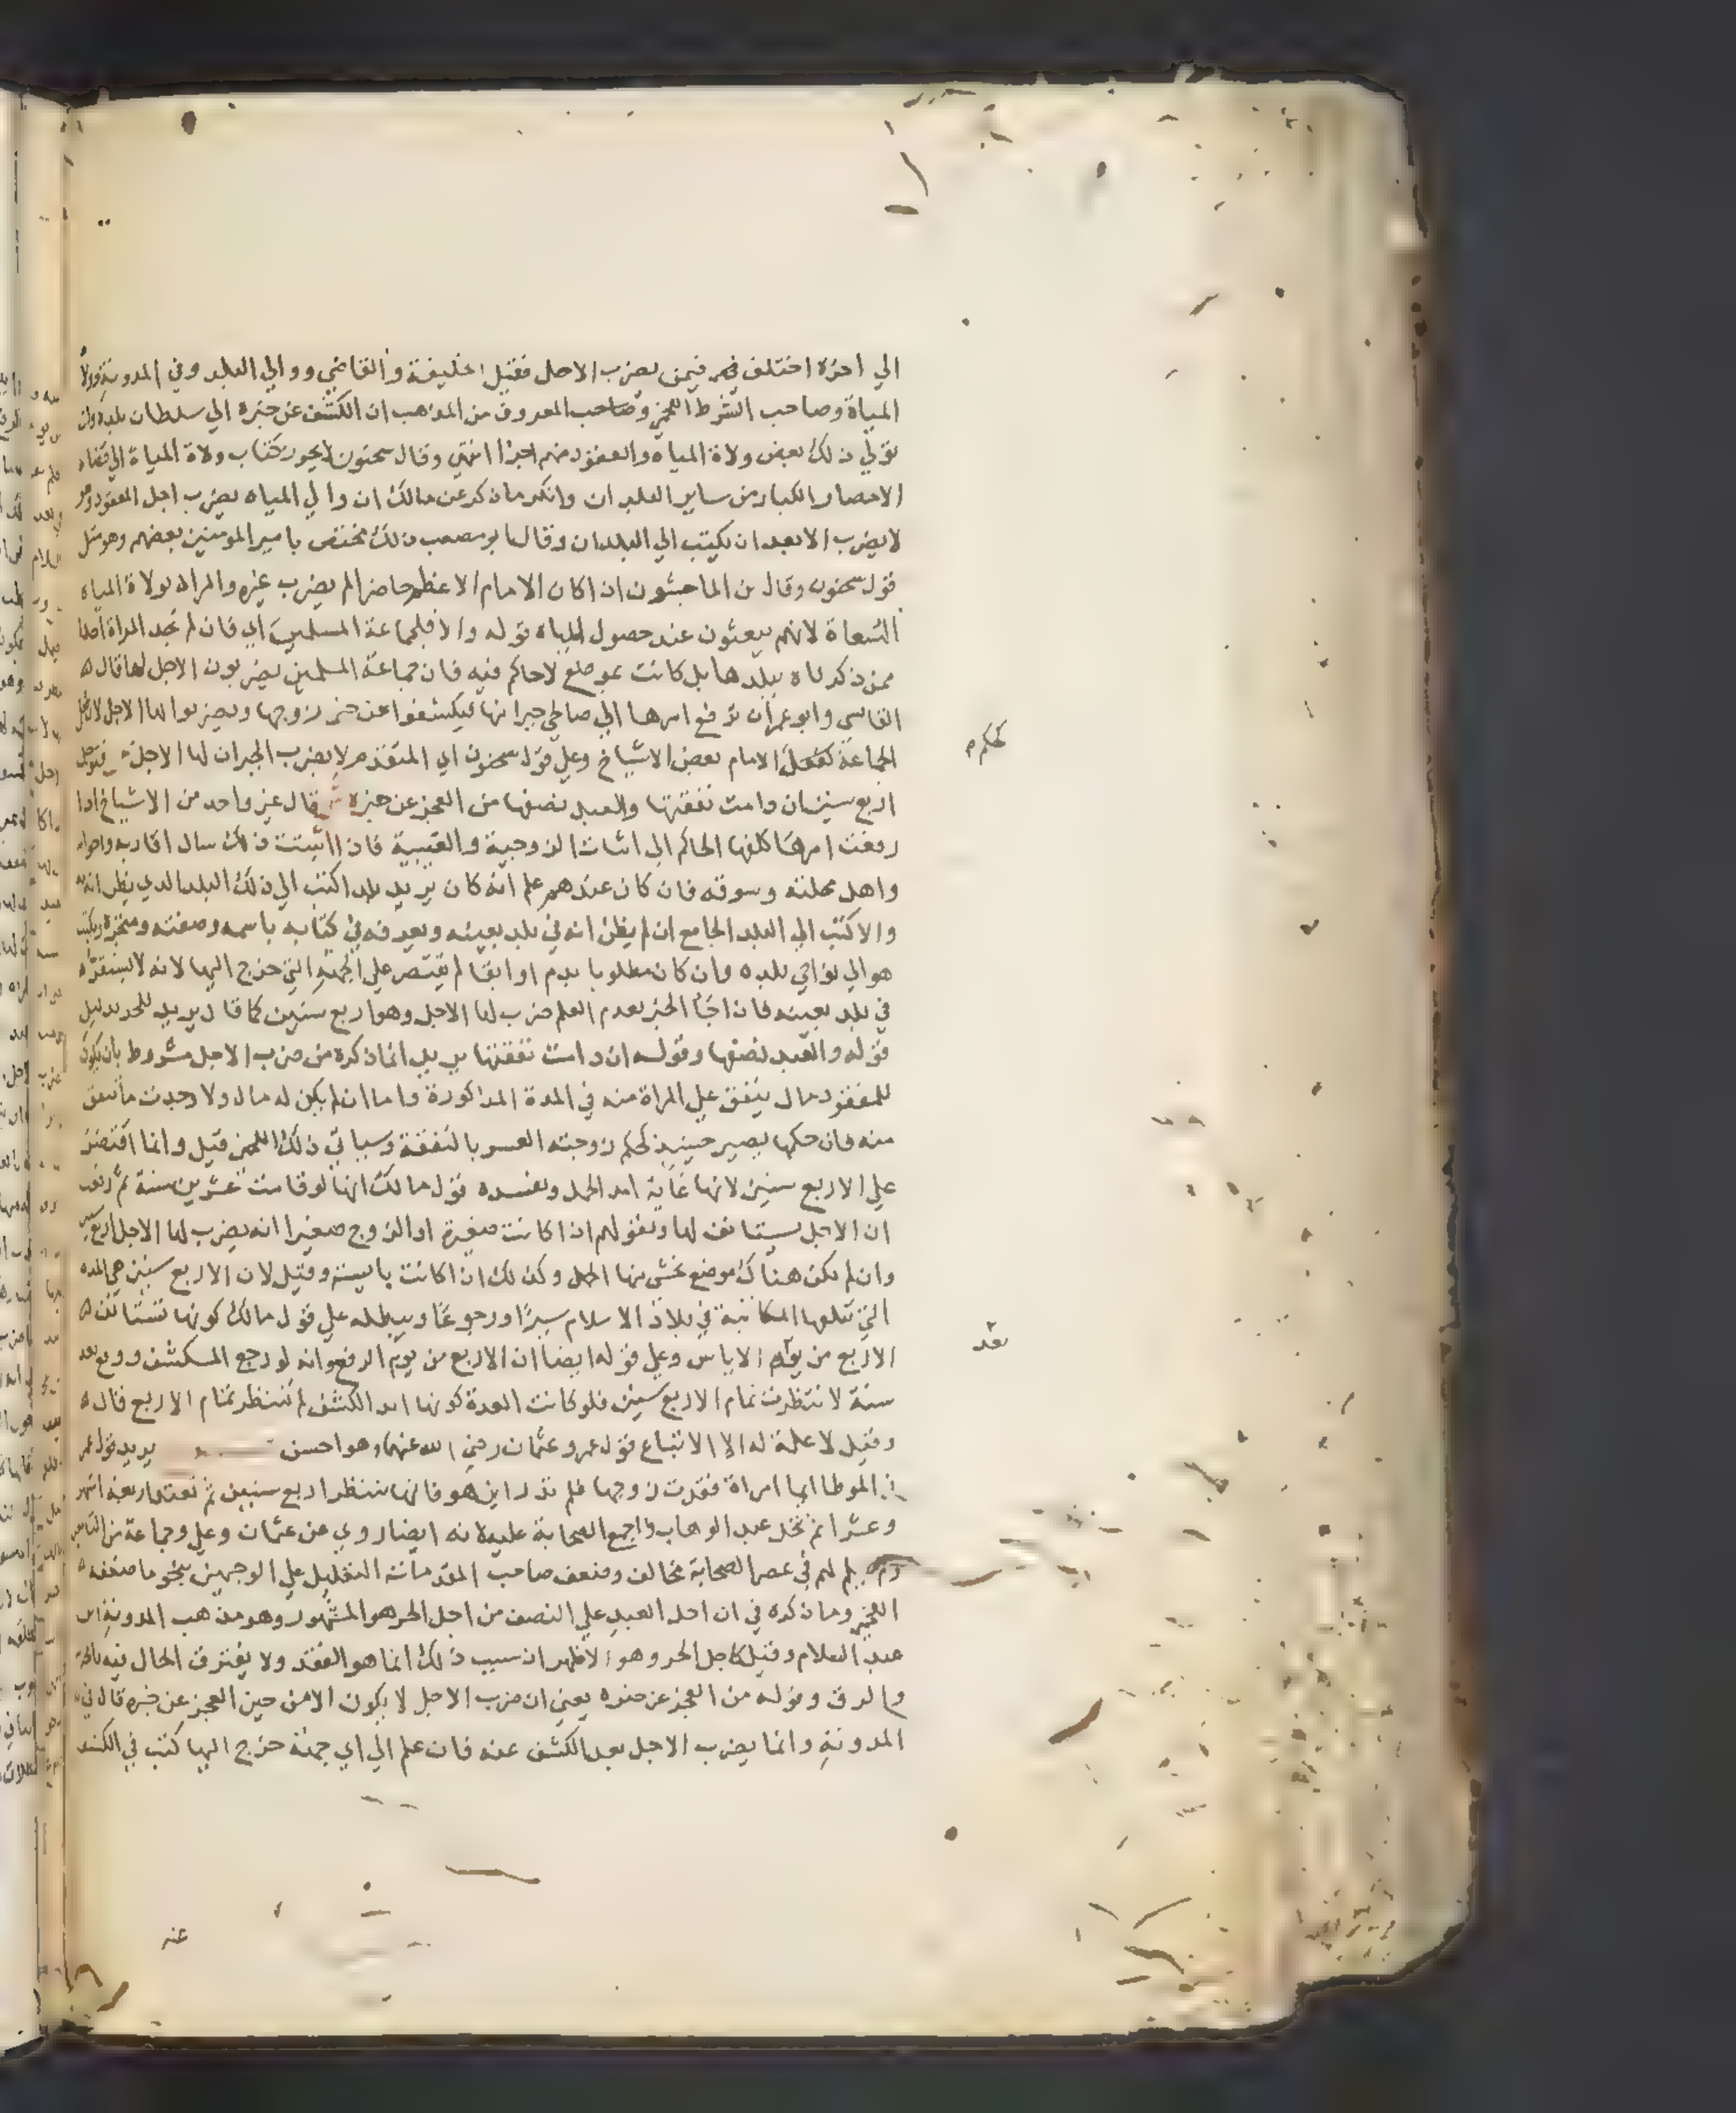 الي اخره اختلف فيمن يضرب الاجل فقيل الخليفة والقاضي ووالي البلد وفي المدونة وولاة
المياة وصاحب الشرط اللخمي والمعروف من المذهب ان الكشف عن خبره الي سلطان بلده وان
تولي ذلك بعض ولاة المياه والمفقود منهم اجزا انتهي وقال سحنون لا يجوز كتاب ولاة المياة الي قضاه
الامصار الكبار من ساير البلدان وانكر ما ذكر عن مالك ان والي المياه يضرب اجل المفقود وهو
لا يضرب الا بعد ان يكتب الي البلدان وقال ابو مصعب ذلك مختص بامير المومنين بعضهم وهو مثل
قول سحنون وقال بن الماجشون اذا كان الامام الاعظم حاضرا لم يضرب غيره والمراد بولاة المياه
السعاة لانهم يبعثون عند حصول المياه قوله والا فلجماعة المسلمين اي فان لم تجد المراة احدا
ممن ذكرناه ببلدها بل كانت بموضع لا حاكم فيه فان جماعة المسلمين يضربون الاجل لها قال
القابسي وابو عمران ترفع امرها الي صالحي جيرانها ليكشفوا عن خبر زوجها ويضربوا لها الاجل لان فعل
الجماعة كفعل الامام بعض الاشياخ وعلي قول سحنون اي المتقدم لا يضرب الجيران لها الاجل فيوجل
اربع سنين ان دامت نفقتها والعبد نصفها من العجز عن خبره قال غير واحد من الاشياخ اذا
رفعت امرها كلفها الحاكم الي اثبات الزوجية والغيبة فان اثبتت ذلك سال اقاربه واخوانه
واهل محلته وسوقه فان كان عندهم علم انه كان يريد بلدا كتب الي ذلك البلد الذي يظن انه به
والا كتب الي البلد الجامع ان لم يظن انه في بلد بعينه ويعرفه في كتابه باسمه وصفته ومتجره ويكتب
هو الي نواحي بلده وان كان مطلوبا بدم او ابقا لم يقتصر علي الجهة التي خرج اليها لانه لا يستقر
في بلد بعينه فاذا جا الخبر بعدم العلم ضرب لها الاجل وهو اربع سنين كما قال يريد للحر بدليل
قوله والعبد نصفها وقوله ان دامت نفقتها يريد ان ما ذكره من ضرب الاجل مشروط بان يكون
للمفقود مال ينفق علي المراة منه في المدة المذكورة واما ان لم يكن له مال ولا وجدت ما تنفق
منه فان حكمها يصير حينيذ كحكم زوجته العسر بالنفقة وسياتي ذلك اللخمي قيل وانما اقتصر
علي الاربع سنين لانها غاية امد الحمل ويفسده قول مالك انها لو قامت عشرين سنة ثم رفعت
ان الاجل يستانف لها وبقولهم اذا كانت صغيرة او الزوج صغيرا انه يضرب لها الاجل اربع سنين
وان لم يكن هناك موضع يخشي منها الحمل وكذلك اذا كانت يايسة وقيل لان الاربع سنين هي المده
التي تبلغها المكاتبة في بلاد الاسلام سيرا ورجوعا ويبطله علي قول مالك كونها تستانف
الاربع من يوم الاياس وعلي قوله ايضا ان الاربع من يوم الرفع وانه لو رجع المستكشف ووقع بعد
سنة لانتظرت تمام الاربع سنين فلو كانت العدة كونها امد الكشف لم تنتظر تمام الاربع قال
وقيل لا علة له الا الاتباع قول عمر وعثمان رضي الله عنهما وهو احسن يريد قول عمر
في الموطا ايما امراة فقدت زوجها فلم تدر اين هو فانها تنتظر اربع سنين ثم تعتد اربعة اشهر
وعشرا ثم تحل عبد الوهاب واجمع الصحابة عليه لانه ايضا روي عن عثمان وعلي وجماعة من التابعين
لهم في عصر الصحابة مخالف وضعف صاحب المقدمات التعليل علي الوجهين بنحو ما ضعفه
اللخمي وما ذكره في ان اجل العبد علي النصف من اجل الحر هو المشهور وهو مذهب المدونة ابن
عبد السلام وقيل كاجل الحر وهو الاظهر ان سبب ذلك انما هو الفقد ولا يفترق الحال فيه بالحرية
والرق وقوله من العجز عن خبره يعني ان ضرب الاجل لا يكون الا من حين العجز عن خبره قال في
المدونة وانما يضرب الاجل بعد الكشف عنه فان علم الي اي جهة خرج اليها كتب في الكشف
لحكم
بعد
عنه